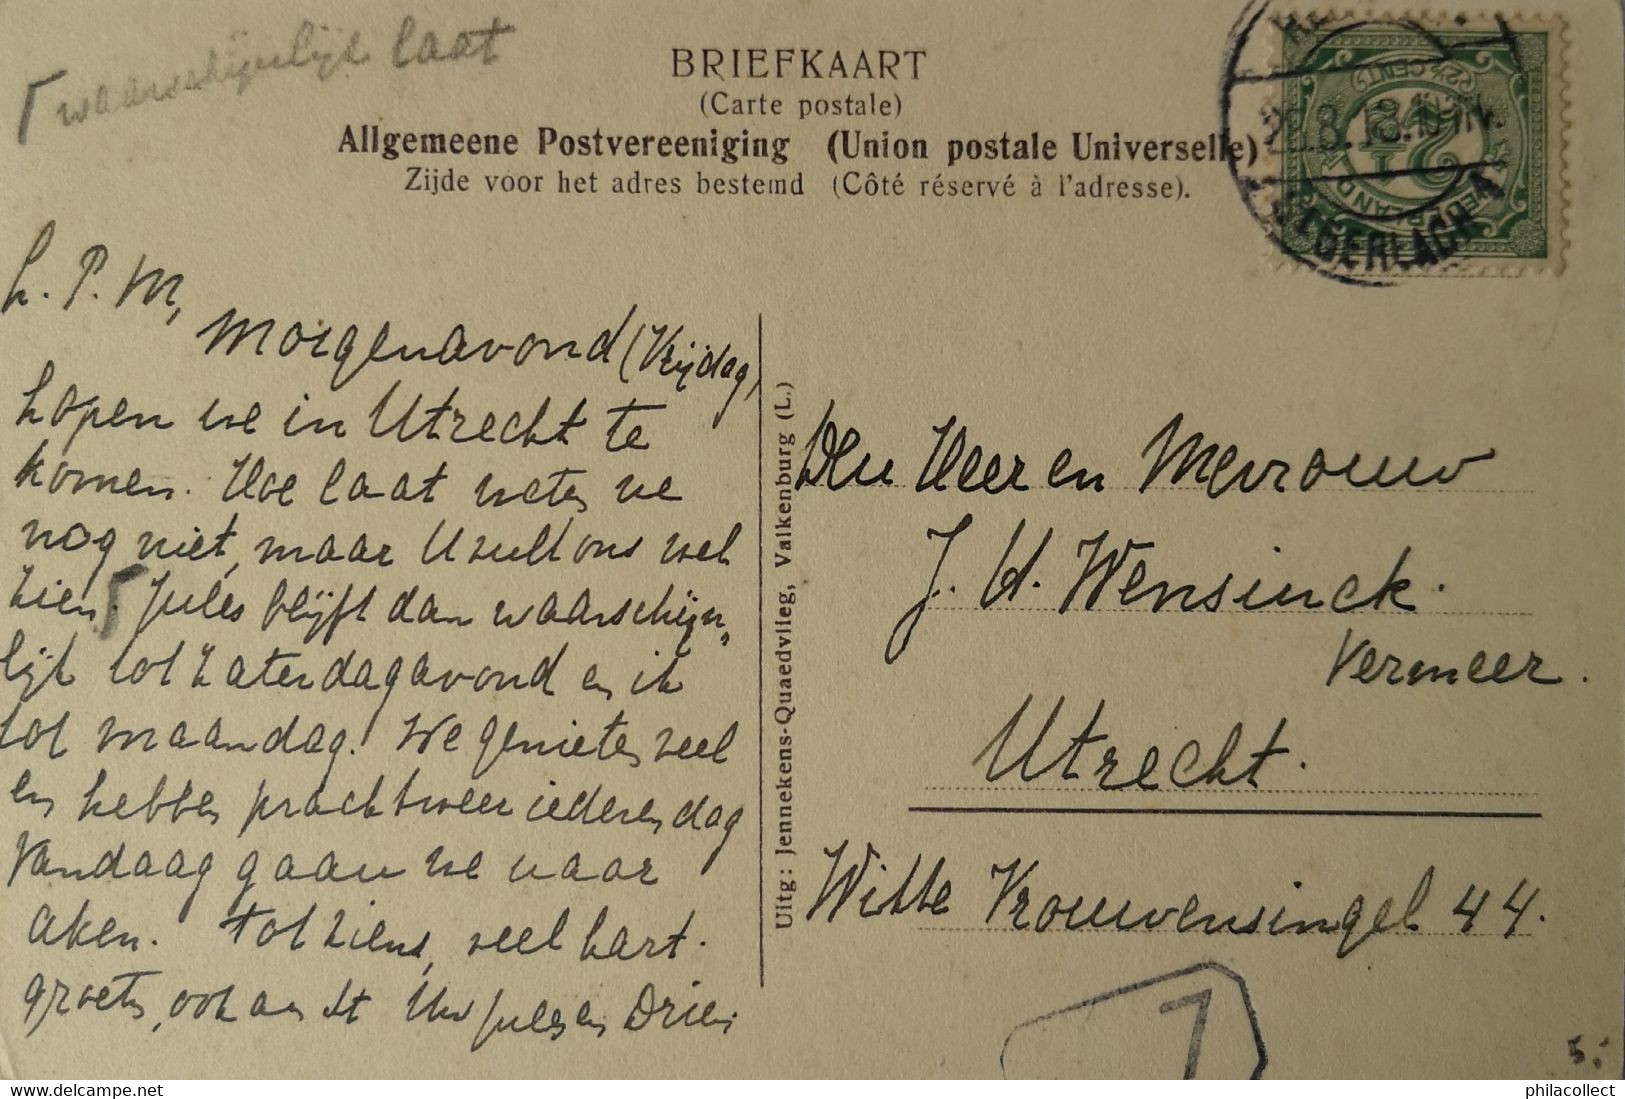 waarschijnlijk laat
BRIEFKAART
(Carte postale)
Allgemeene Postvereeniging (Union postale Universelle)
Zijde voor het adres bestemd (Côté réservé à l'adresse).
2½ CENT
NEDERLAND
L. P. M,
Morgenavond (Vrijdag)
hopen we in Utrecht te
komen. Hoe laat weten we
nog niet, maar U zult ons wel
zien. Jules blijft dan waarschijn„
lijk tot Zaterdagavond en ik
tot maandag. We genieten veel
en hebben prachtweer iederen dag
Vandaag gaan we naar
Aken. Tot ziens, veel hart.
groeten, ook aan Uw Jules en Dries
Uitg: Jennekens-Quaedvlieg, Valkenburg (L.)
Den Heer en Mevrouw
J. H. Wensinck.
Vermeer.
Utrecht.
Witte Vrouwensingel 44.
1
5.-
philacollect